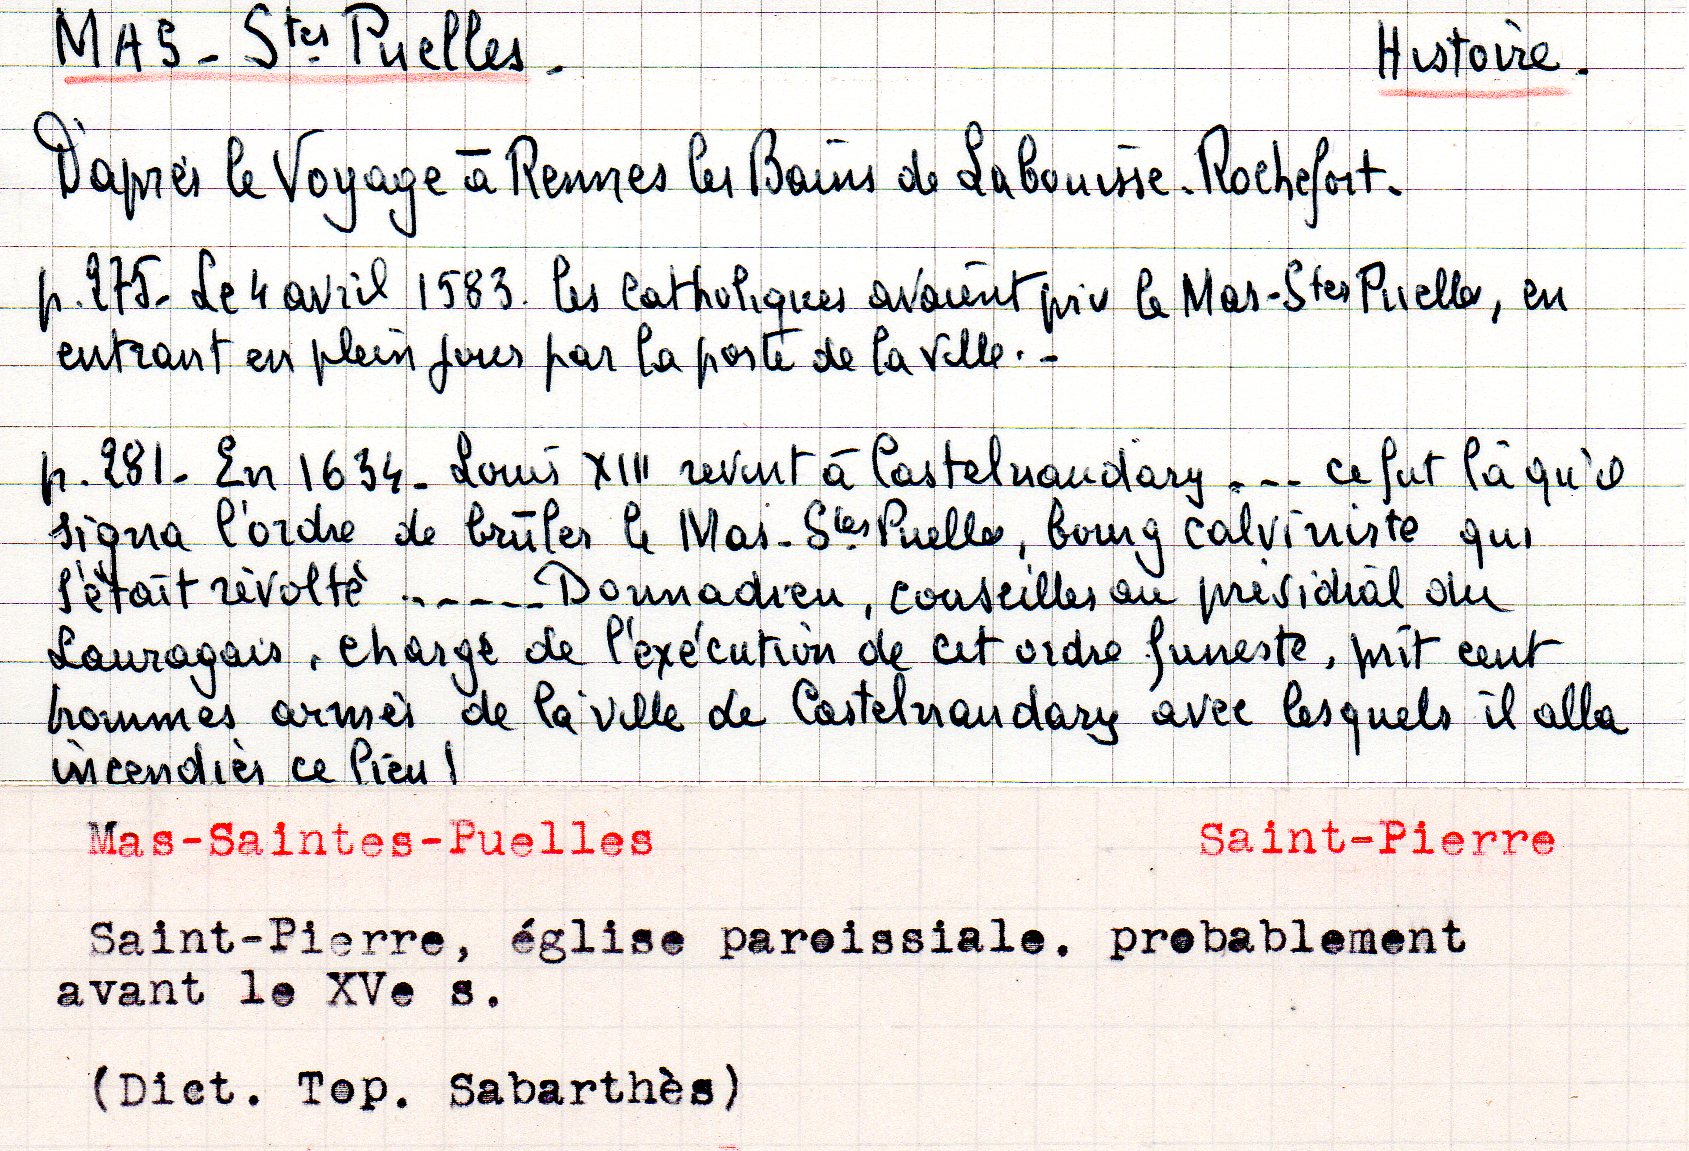 MAS - Stes Puelles. Histoire.
D'après le Voyage à Rennes les Bains de Labouïsse-Rochefort.
p. 275. Le 4 avril 1583. les catholiques avaient pris le Mas-Stes Puelles, en
entrant en plein jour par la porte de la ville. -
p. 281. En 1634. Louis XIII revint à Castelnaudary .--- ce fut là qu'il
signa l'ordre de brûler le Mas-Stes Puelles, bourg calviniste qui
s'était révolté ------ Donnadieu, conseiller au présidial du
Lauragais, chargé de l'exécution de cet ordre funeste, prit cent
hommes armés de la ville de Castelnaudary avec lesquels il alla
incendier ce lieu!
Mas-Saintes-Puelles Saint-Pierre
Saint-Pierre, église paroissiale. probablement
avant le XVe s.
(Dict. Top. Sabarthès)